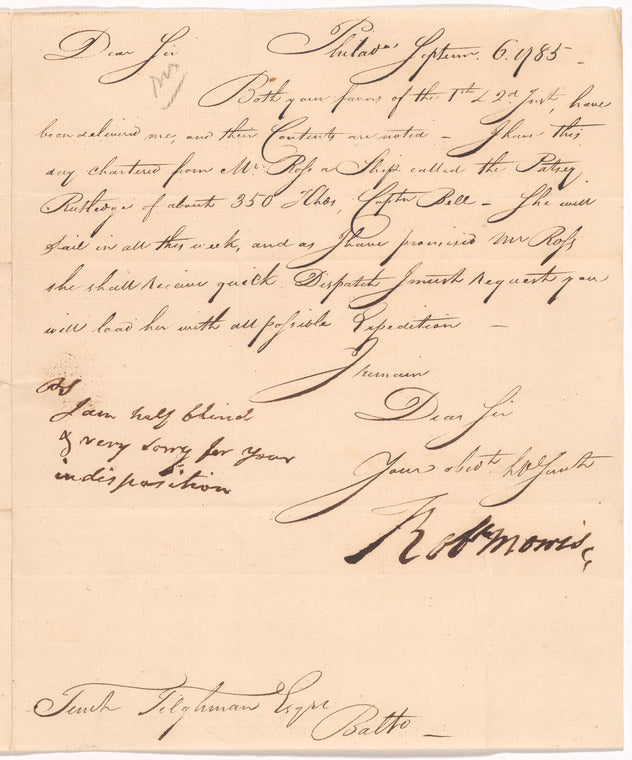 Dear Sir Philada Septemr. 6. 1785 -
Both your favors of the 1st & 2d Inst, have
been delivered me, and their Contents are noted - I have this
day chartered from Mr. Ross a Ship called the Patsey
Rutledge of about 350 Hhds, Captn Bell - She will
sail in all this week, and as I have promised Mr Ross
she shall receive quick Dispatch I must request you
will load her with all possible Expedition -
I remain
Dear Sir
Your obedt. hble Servt
Robt Morris
PS
I am half blind
& very sorry for your
indisposition
Tench Tilghman Esqre
Balto -